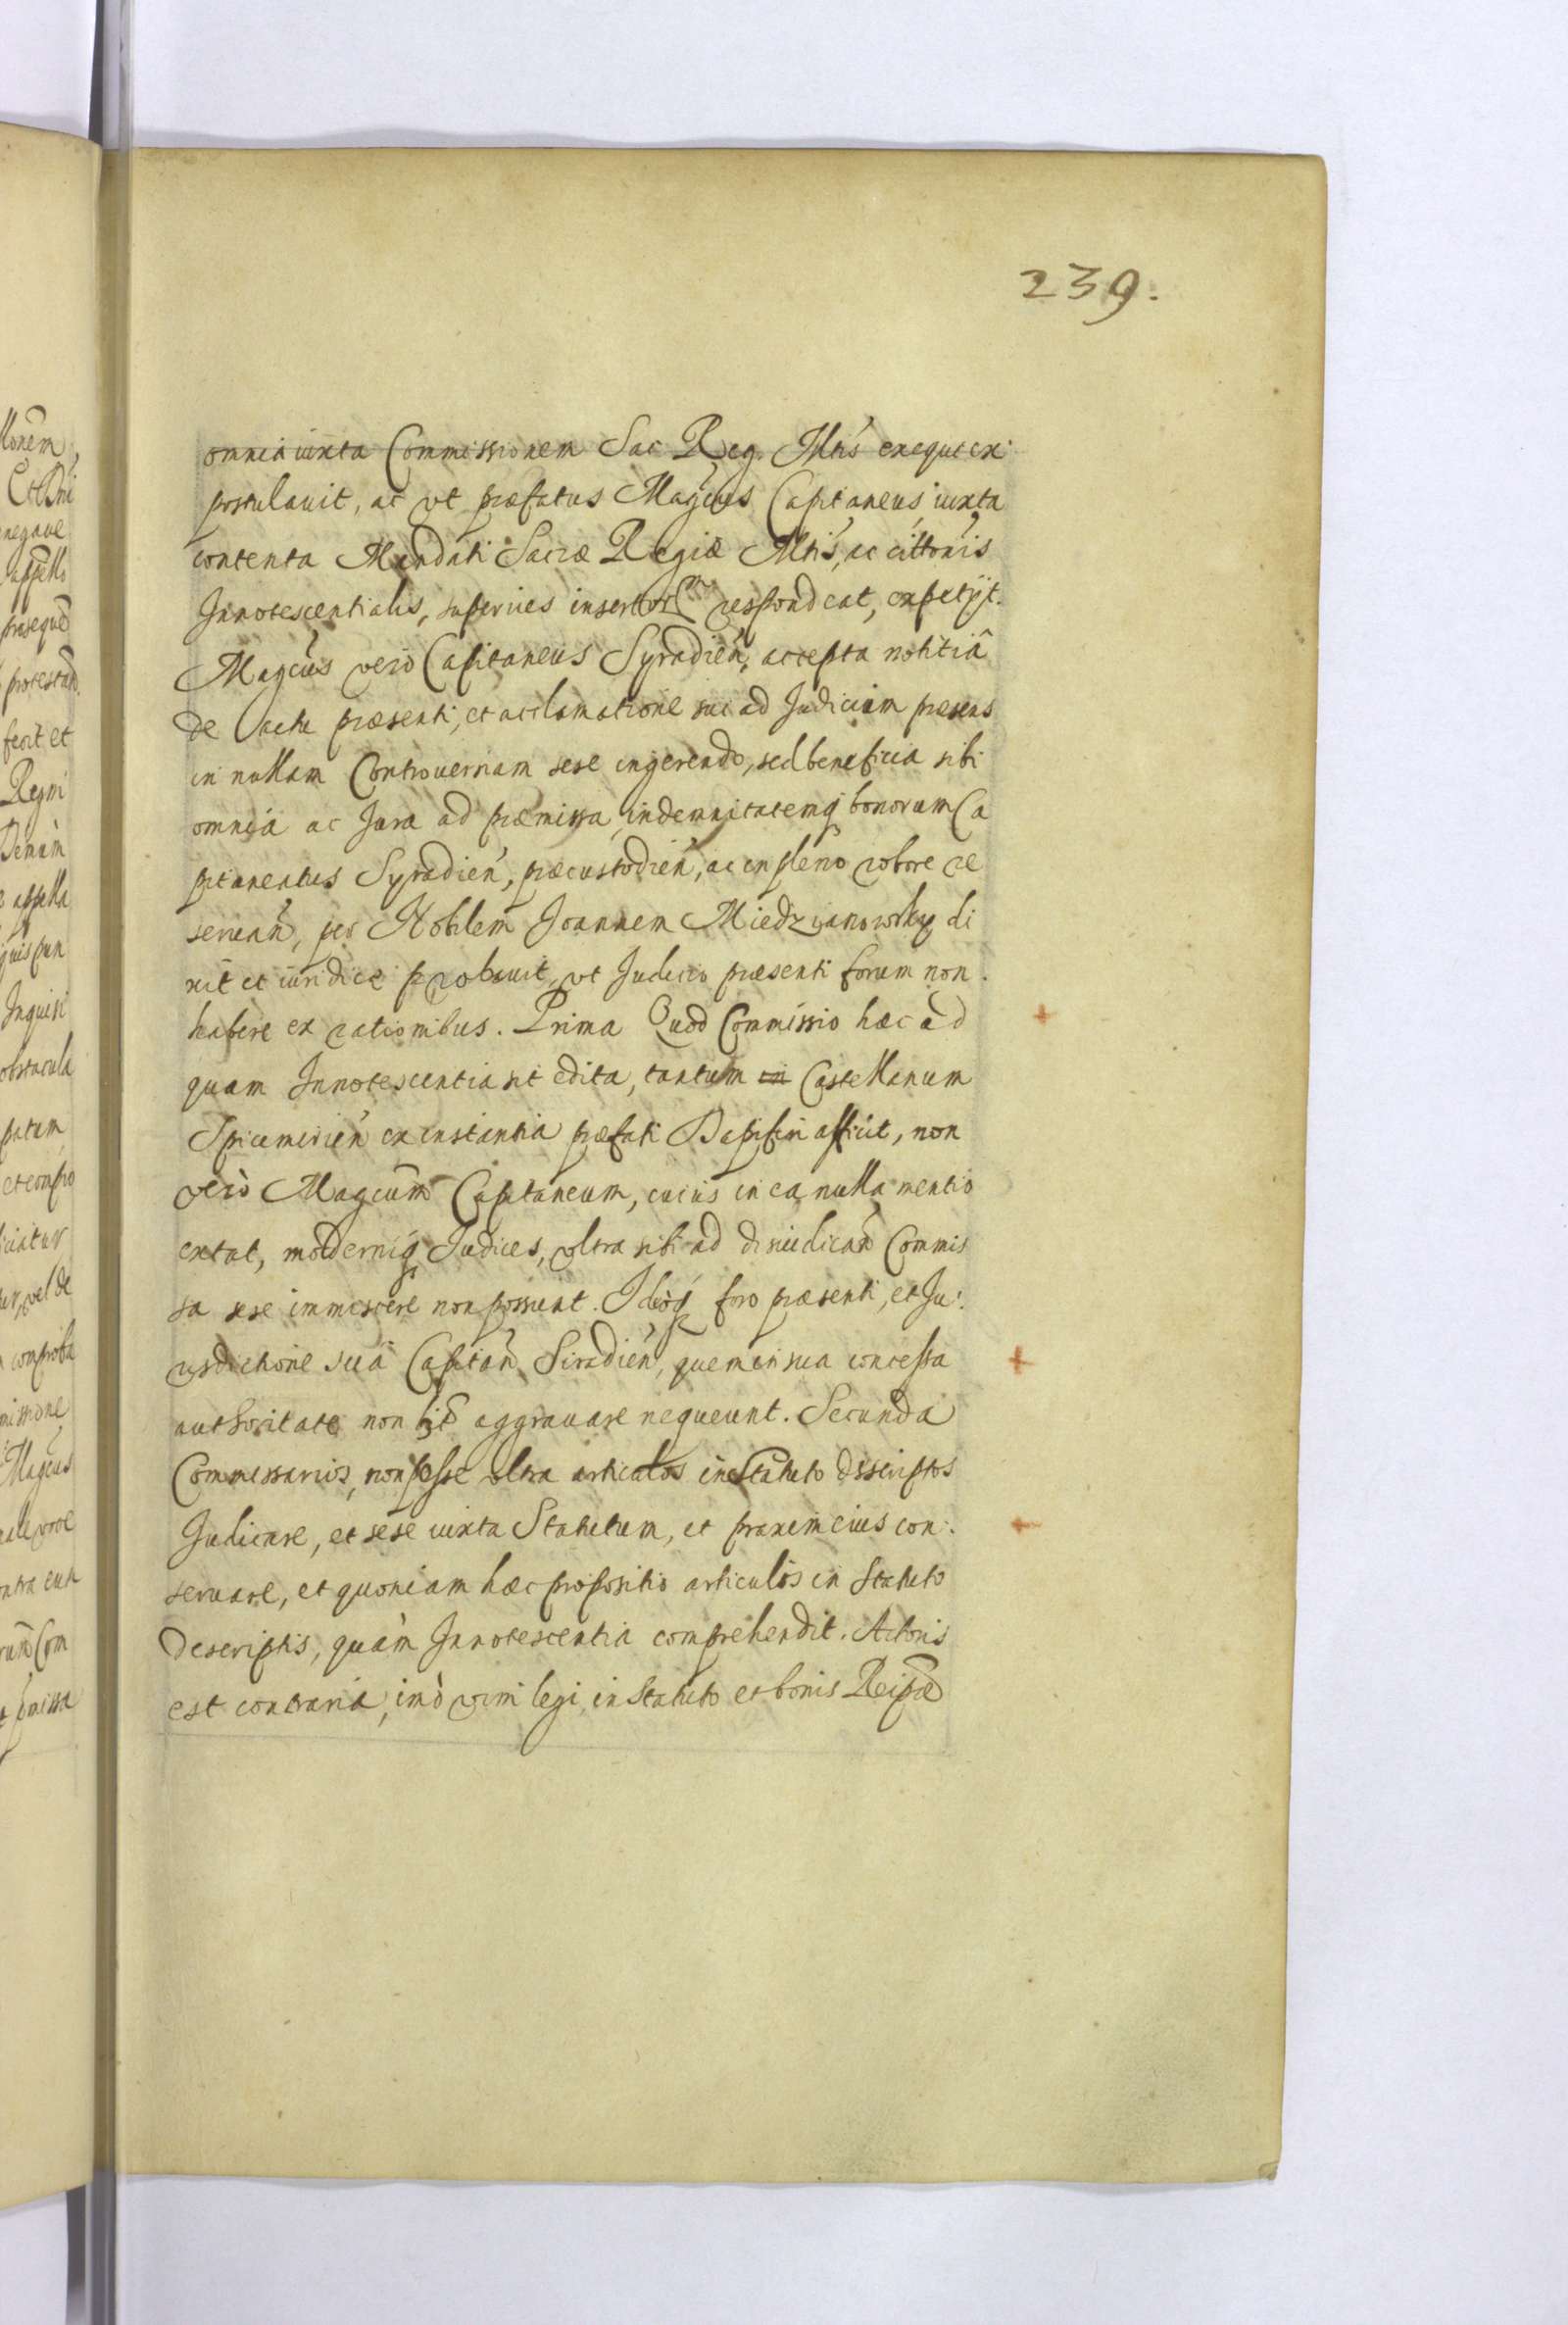 239.
omnia iuxta Commissionem Sac Reg. Mtis exequi ex
postulauit, ac vt præfatus Magcus Capitaneus iuxta
contenta Mandati Sacræ Regiæ Mtis, ac cittonis
Innotescentialis, superius insertor respondeat, expetijt.
Magcus vero Capitaneus Syradien, accepta notitiâ
de actu præsenti, et acclamatione sui ad Judicium præsens
in nullam Controuersiam sese ingerendo, sed beneficia sibi
omnia ac Jura ad præmissa, indemnitatemq bonorum Ca
pitaneatus Syradien, præcustodien, ac in pleno robore re
seruan, per Nobilem Joannem Miedzyanowsky di
xit et iuridice probauit, vt Judicio præsenti forum non
habere ex rationibus. Prima Quod Commissio hæc ad
quam Innotescentia sit edita, tantum Castellanum
Spicimirien ex instantia præfati Dapiferi afficit, non
verò Magcum Capitaneum, cuius in ea nulla mentio
extat, moderniq Judices, vltra sibi ad diiudican Commis
sa sese immiscere non possunt. Ideoq foro præsenti, et Ju:
risdictione sua Capitan Siradien, quem in sua concessa
authoritate non aggrauare nequeunt. Secunda
Commissarios, non posse vltra articulos in Statuto descriptos
Judicare, et sese iuxta Statutum, et praxim eius con:
seruare, et quoniam hæc propositio articulis in Statuto
descriptis, quàm Innotescentia comprehendit. Actoris
est contraria, imò vim legi, in Statuto et bonis Reipcæ